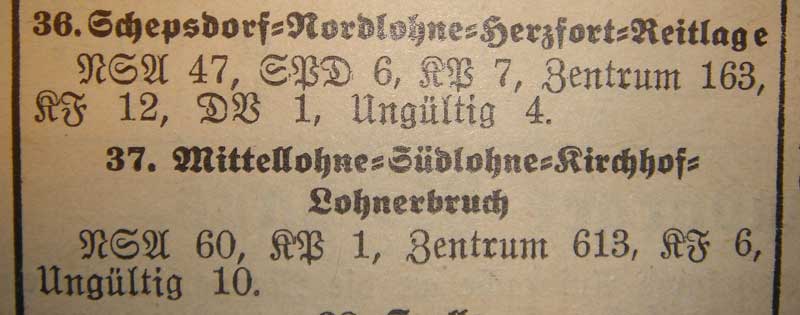 36. Schepsdorf=Nordlohne=Herzfort=Reitlage
NSA 47, SPD 6, KP 7, Zentrum 163,
KF 12, DV 1, Ungültig 4.
37. Mittellohne=Südlohne=Kirchhof=
Lohnerbruch
NSA 60, KP 1, Zentrum 613, KF 6,
Ungültig 10.